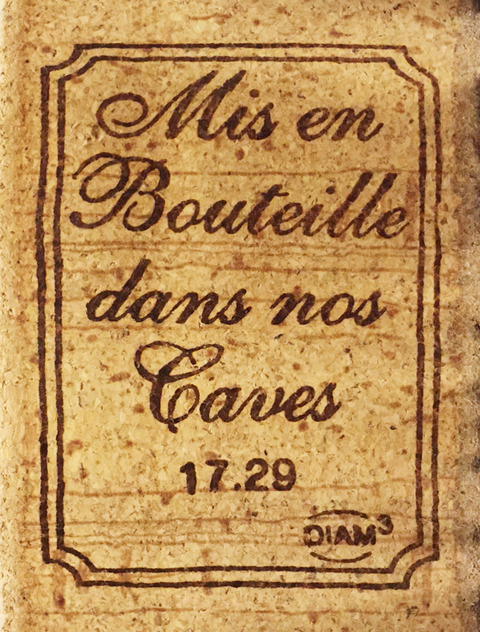 Mis en
Bouteille
dans nos
Caves
17.29
DIAM3